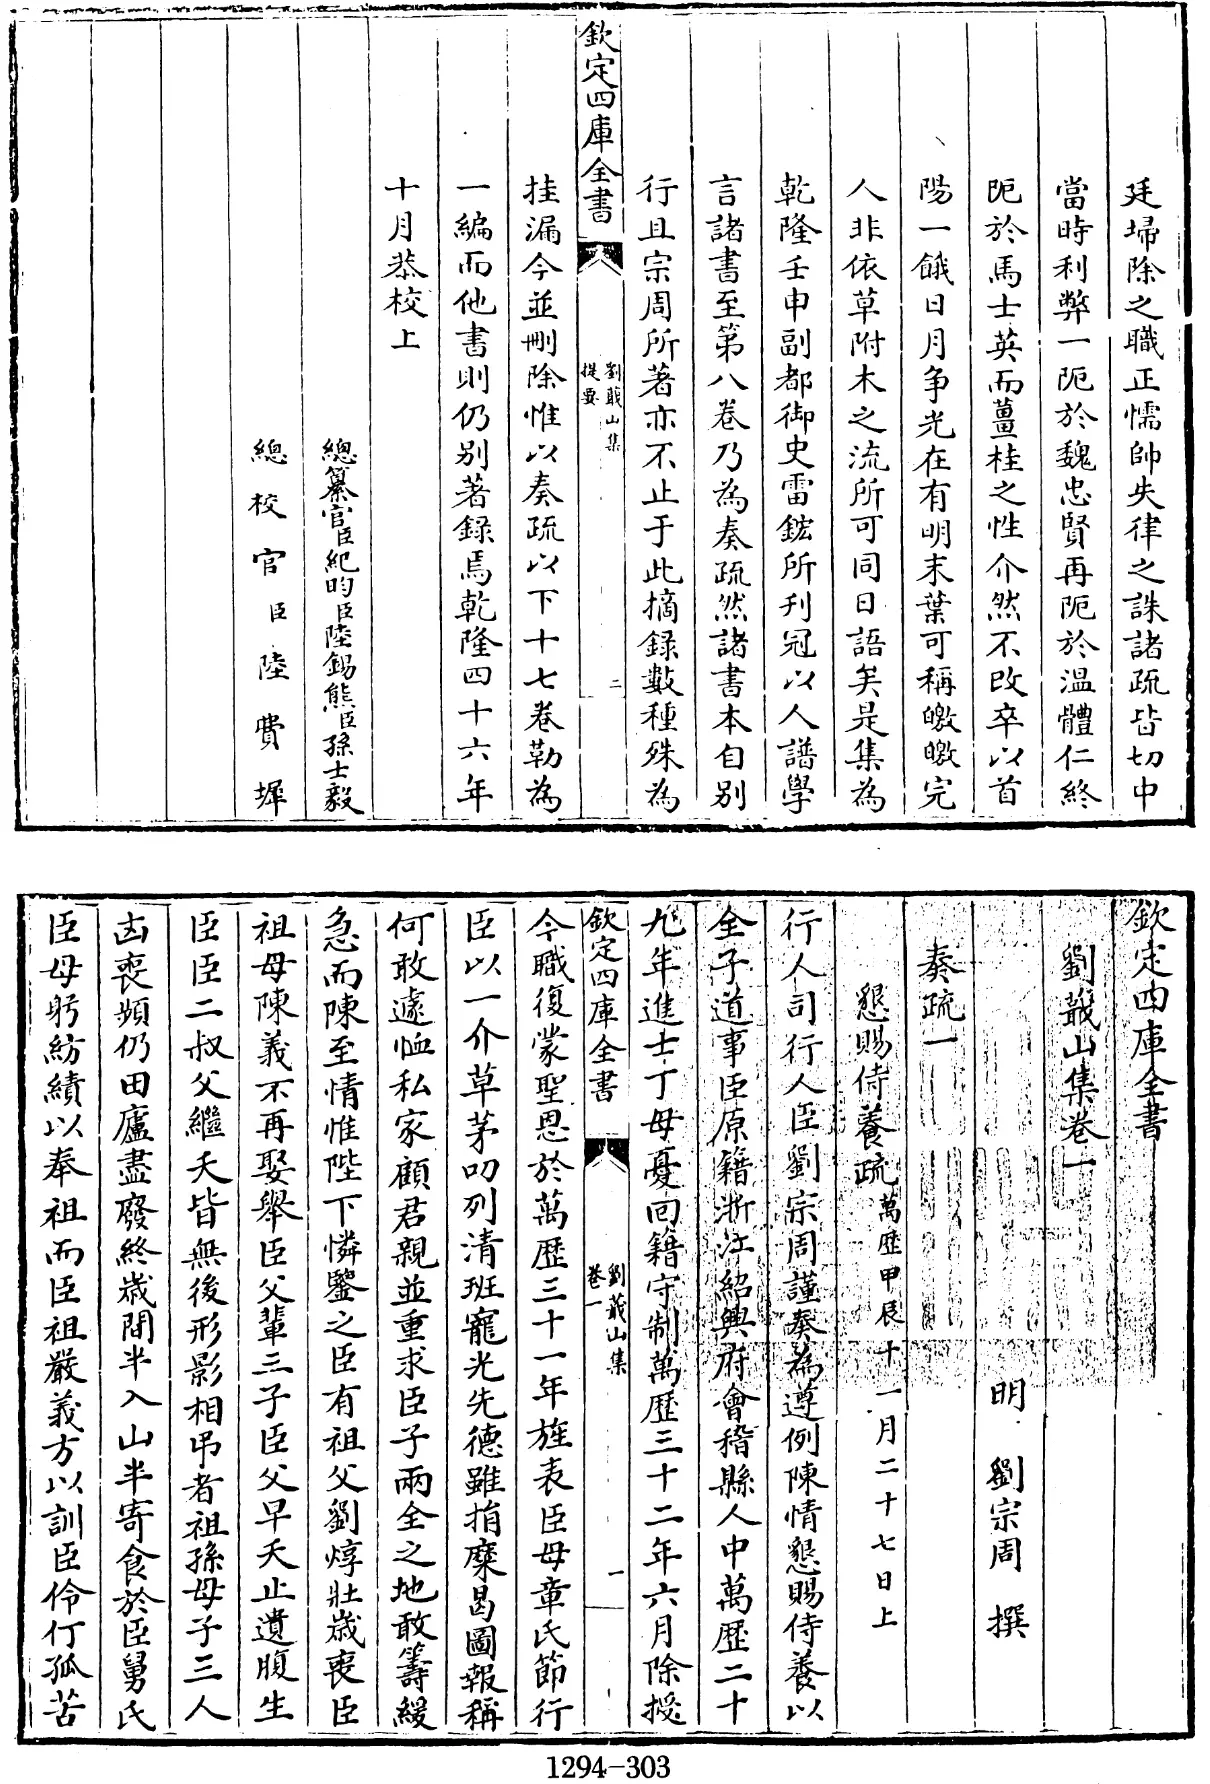 廷埽除之職正懦帥失律之誅諸疏皆切中
當時利弊一阨於魏忠賢再阨於温體仁終
阨於馬士英而薑桂之性介然不改卒以首
陽一餓日月争光在有明末葉可稱皦皦完
人非依草附木之流所可同日語矣是集為
乾隆壬申副都御史雷鋐所刋冠以人譜學
言諸書至第八卷乃為奏疏然諸書本自别
行且宗周所著亦不止于此摘録數種殊為
欽定四庫全書
劉蕺山集
提要
二
挂漏今並刪除惟以奏疏以下十七卷勒為
一編而他書則仍别著録焉乾隆四十六年
十月恭校上
總纂官臣紀昀臣陸錫熊臣孫士毅
總校官臣陸費墀
欽定四庫全書
劉蕺山集卷一
明 劉宗周 撰
奏疏一
懇賜侍養疏萬歴甲辰十一月二十七日上
行人司行人臣劉宗周謹奏為遵例陳情懇賜侍養以
全子道事臣原籍浙江紹興府會稽縣人中萬歴二十
九年進士丁母憂回籍守制萬歴三十二年六月除授
欽定四庫全書
劉蕺山集
卷一
一
今職復蒙聖恩於萬歴三十一年旌表臣母章氏節行
臣以一介草茅叨列清班寵光先德雖捐糜曷圖報稱
何敢遽恤私家顧君親並重求臣子兩全之地敢籌緩
急而陳至情惟陛下憐鑒之臣有祖父劉焞壯歳喪臣
祖母陳義不再娶舉臣父輩三子臣父早夭止遺腹生
臣臣二叔父繼夭皆無後形影相弔者祖孫母子三人
凶喪頻仍田廬盡廢終歳間半入山半寄食於臣舅氏
臣母躬紡績以奉祖而臣祖嚴義方以訓臣伶仃孤苦
1294-303